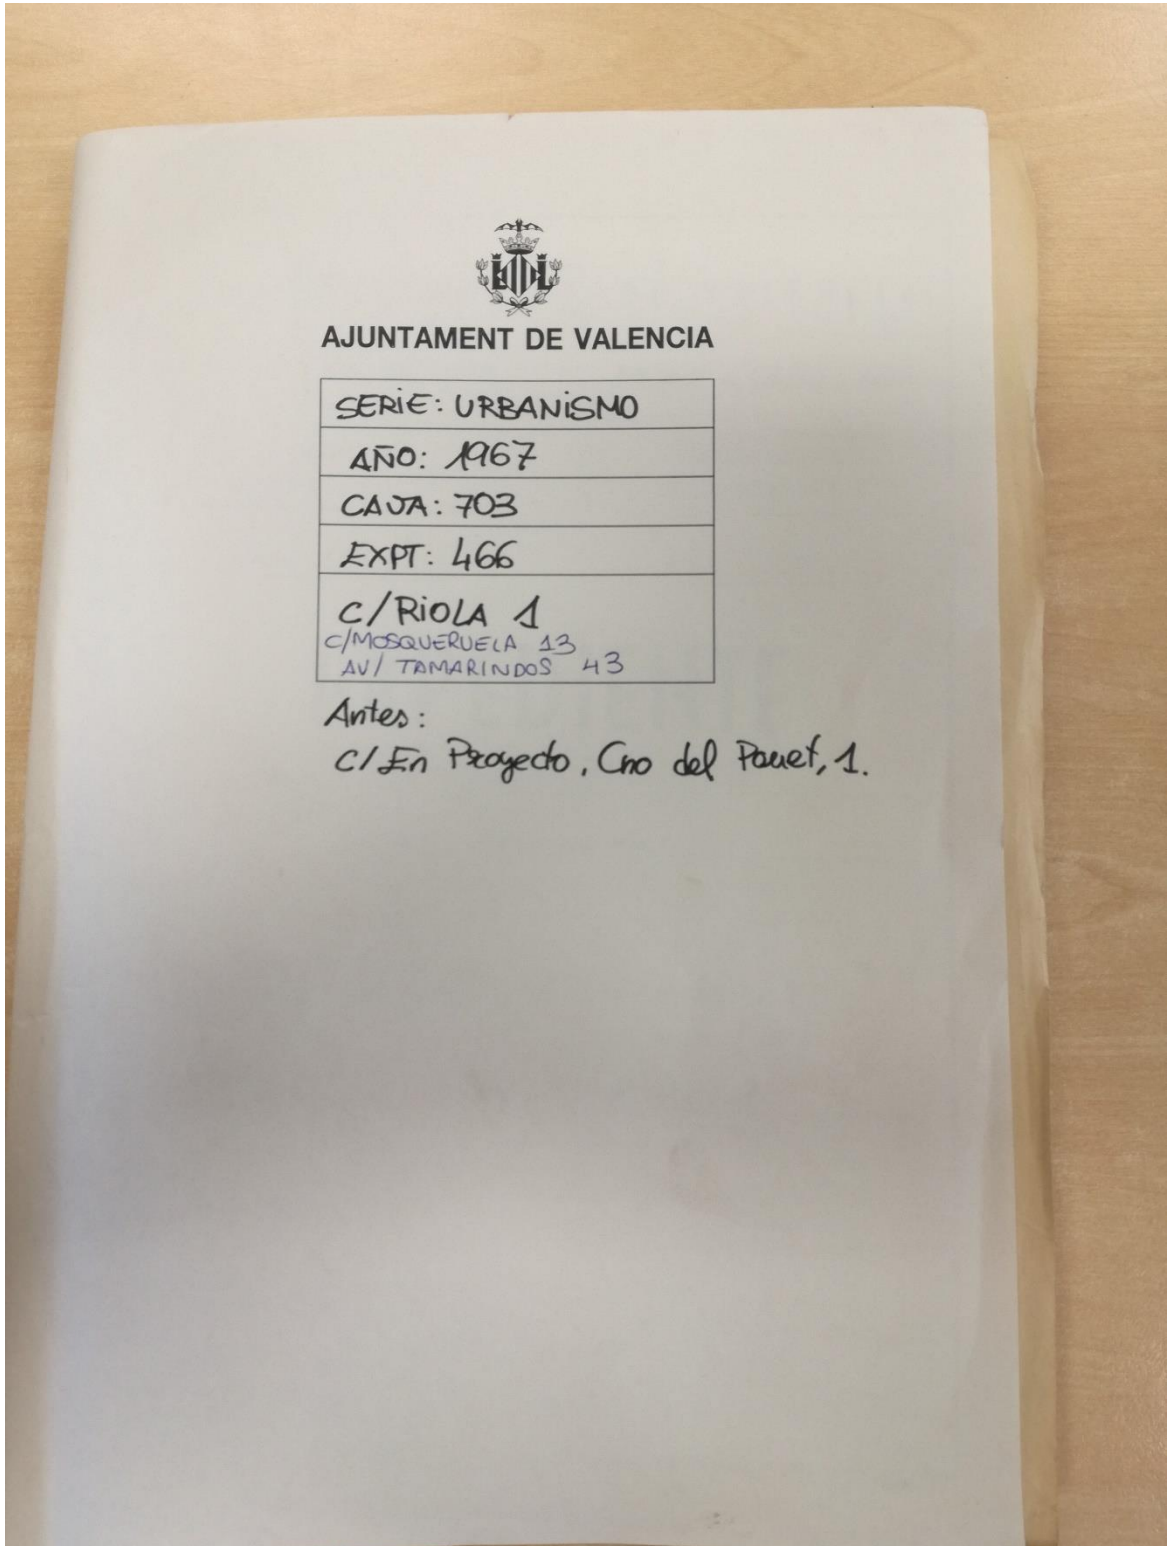 AJUNTAMENT DE VALENCIA
SERIE: URBANISMO
AÑO: 1967
CAJA: 703
EXPT: 466
C/RIOLA 1
C/MOSQUERUELA 13
AV/ TAMARINDOS 43
Antes:
C/ En Proyecto, Cno del Pouet, 1.